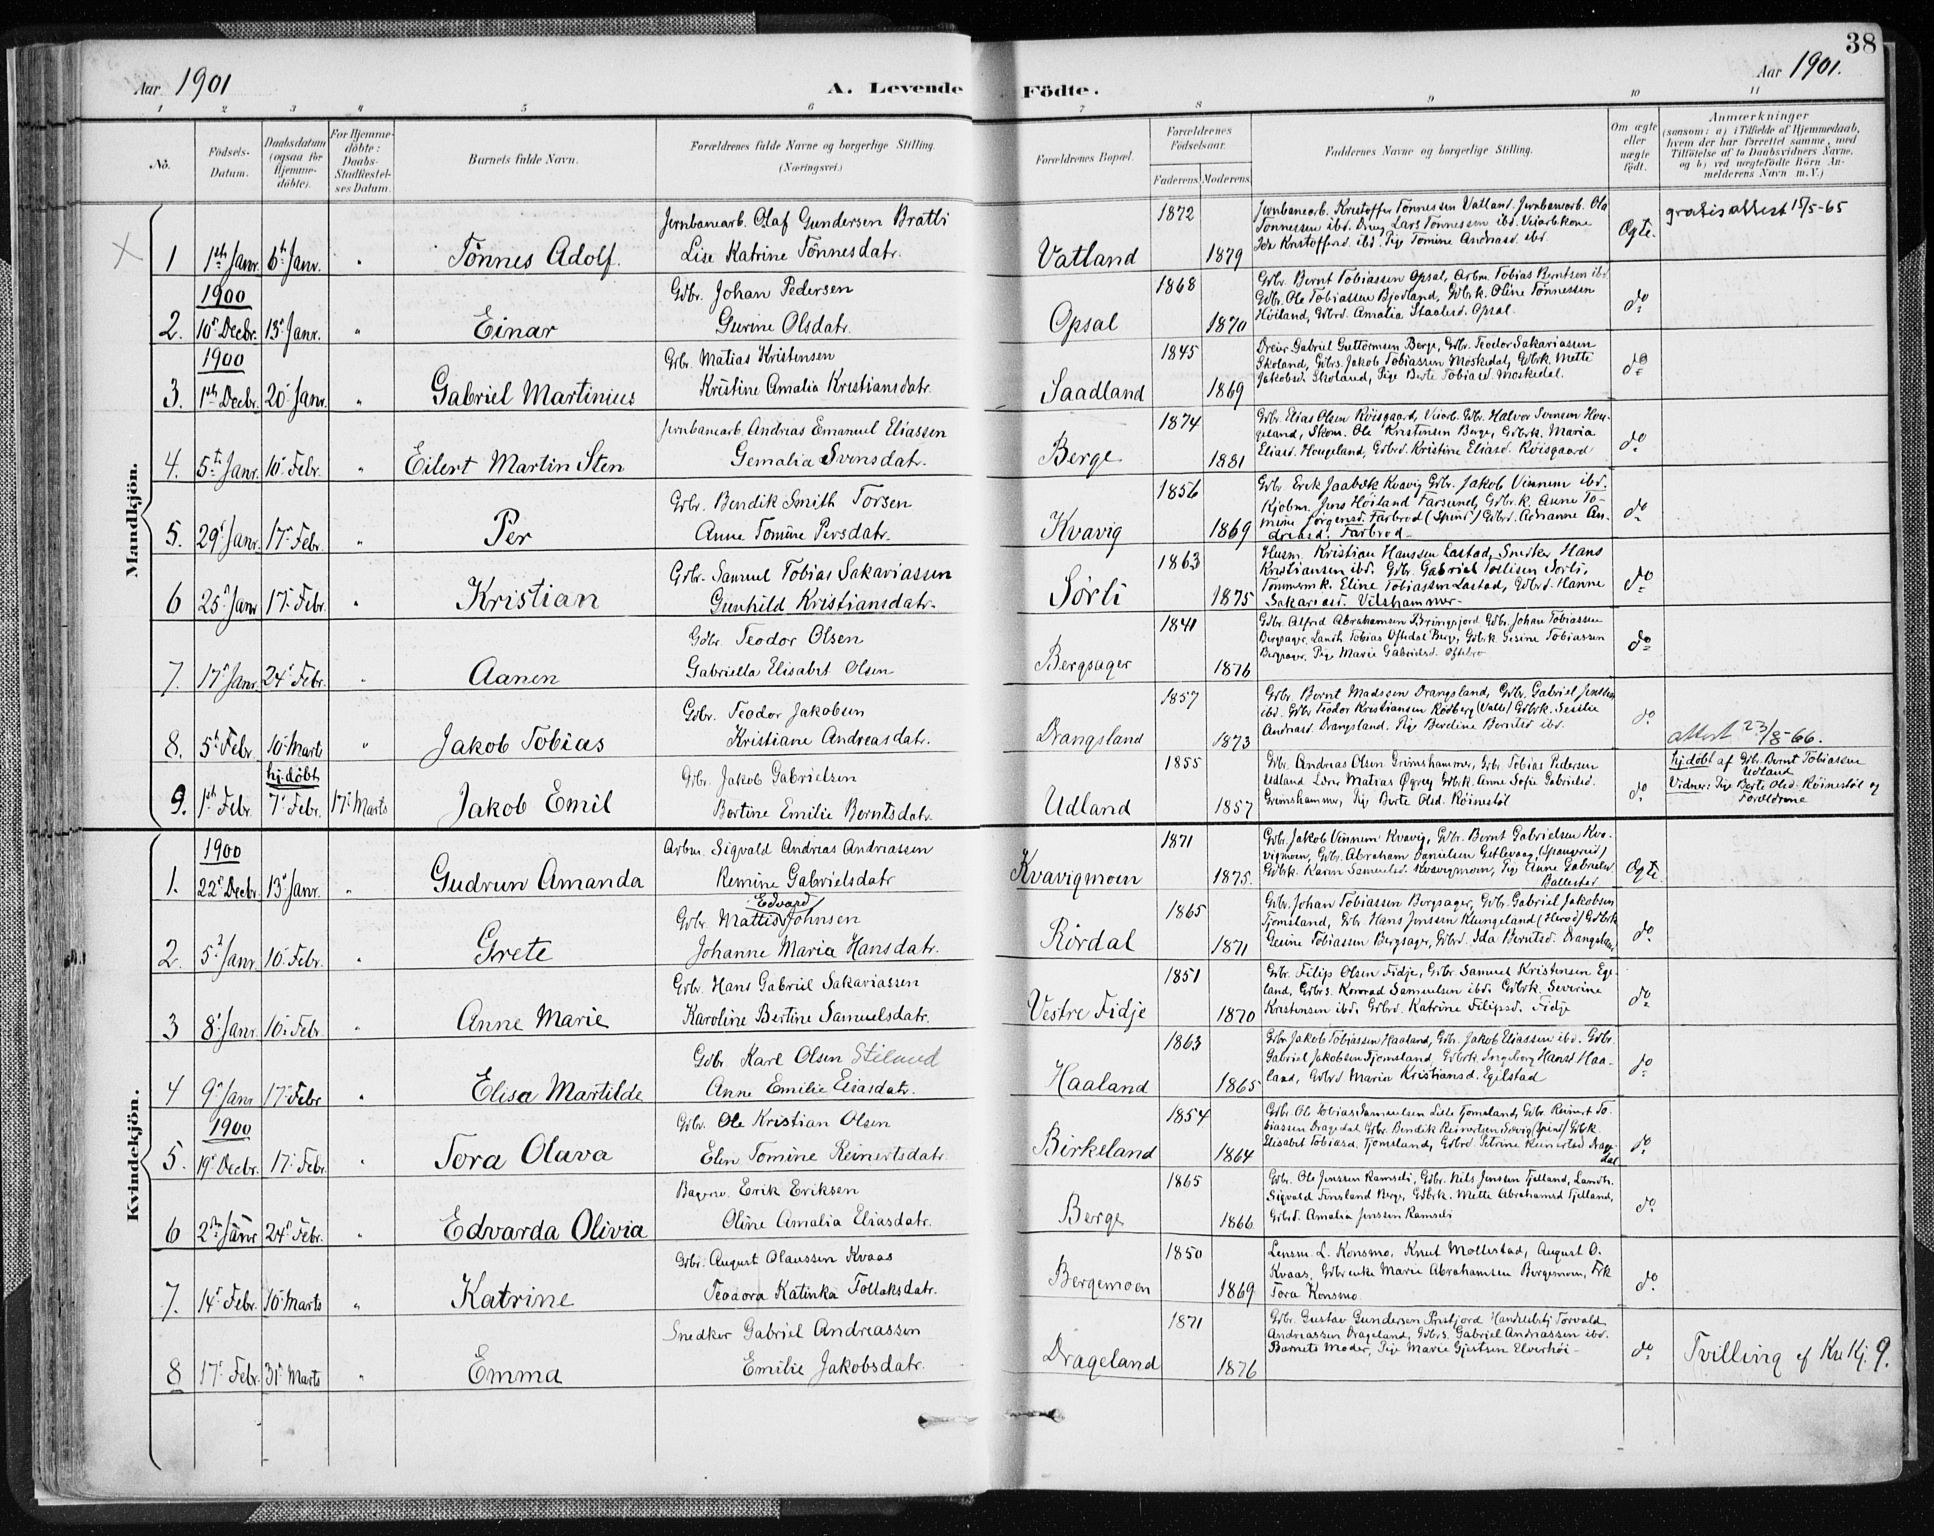 38
Aar 1901
A. Levende Födte.
Aar 1901.
1 2 3 4 5 6 7 8 9 10 11
No.
Födsels-Datum.
Daabsdatum (ogsaa for Hjemme-döbte).
For Hjemme-döbte: Daabs-Stadfæstel-ses Datum.
Barnets fulde Navn.
Forældrenes fulde Navne og borgerlige Stilling. (Næringsvei.)
Forældrenes Bopæl.
Forældrenes Födselsaar.
Faderens. Moderens.
Faddernes Navne og borgerlige Stilling.
Om ægte eller uægte födt.
Anmærkninger
(saasom: a) i Tilfælde af Hjemmedaab, hvem der har forrettet samme, med Tilföielse af to Daabsvidners Navne, og b) ved uægtefödte Börn An-melderens Navn m. V.)
Mandkjön.
1 1ste Janr. 6te Janr. " Tönnes Adolf.
Jernbanearb. Olaf Gundersen Bratli
Lise Katrine Tönnesdatr.
Vatland 1872 1879
Jernbanearb. Kristoffer Tönnessen Vatland. Jernbanearb. Ola
Tönnessen ibd. Dreng Lars Tönnessen ibd. Veiarb.kone
Ida Kristoffersd. ibd. Pige Tomine Andreasd. ibd.
Ægte.
gratis attest 18/5-65
1900
2. 10 Decbr. 13 Janr. " Einar
Gdbr. Johan Pedersen
Gurine Olsdatr.
Opsal 1868 1870
Gdbr. Bernt Tobiassen Opsal, Arbm. Tobias Berntsen ibd.
Gdbr. Ole Tobiassen Bjodland, Gdbrk. Oline Tönnessen
Höiland, Gdbrd. Amalia Staalesd. Opsal.
do
1900
3. 1ste Decbr. 20 Janr. " Gabriel Martinius
Gdbr. Matias Kristensen
Kristine Amalia Kristiansdatr.
Saadland 1845 1869
Dreier Gabriel Guttormsen Berge, Gdbr. Teodor Sakariassen
Skoland, Gdbrs. Jakob Tobiassen Moskedal, Gdbrk. Mette
Jakobsd. Skoland, Pige Berte Tobiasd. Moskedal.
do
4. 5te Janr. 10 Febr. " Eilert Martin Sten
Jernbanearb. Andreas Emanuel Eliassen
Gemalia Svensdatr.
Berge 1874 1881
Gdbr. Elias Olsen Röisgaard, Veiarb. Gdbr. Halvor Svensen Hou-
geland, Skom. Ole Kristensen Berge, Gdbrk. Maria
Eliasd. Hougeland, Gdbrd. Kristine Eliasd. Röisgaard
do
5. 29 Janr. 17 Febr. " Per
Gdbr. Bendik Smith Torsen
Anne Tomine Persdatr.
Kvavig 1856 1869
Gdbr. Erik Jaabæk Kvavig Gdbr. Jakob Vinnum ibd.
Kjöbm. Jens Höiland Farsund, Gdbr.k. Anne To-
mine Jörgensd. Farbrod (Spind) Gdbrd. Adrianne An-
dreasd. Farbrod
do
6 25 Janr 17 Febr. " Kristian
Gdbr. Samuel Tobias Sakariassen
Gunhild Kristiansdatr.
Sörli 1863 1875
Husm. Kristian Hanssen Lastad, Snedker Hans
Kristiansen ibd. Gdbr. Gabriel Tollisen Sörli,
Tömmerm.k. Eline Tobiassen Lastad, Gdbrd. Hanne
Sakariasd. Vitshammer
do
7. 17 Janr. 24 Febr. " Aanen
Gdbr. Teodor Olsen
Gabriella Elisabet Olsen
Bergsager 1841 1876
Gdbr. Alfrid Abrahamsen Bringsjord, Gdbr. Johan Tobiassen
Bergsager, Landh. Tobias Oftedal Berge, Gdbrk. Gesine Tobiassen
Bergsager, Pige Marie Gabrielsd. Oftebro
do
8. 5te Febr. 10 Marts " Jakob Tobias
Gdbr. Teodor Jakobsen
Kristiane Andreasdatr.
Drangsland 1857 1873
Gdbr. Bernt Madssen Drangsland, Gdbr. Gabriel Jenssen
ibd. Gdbr Teodor Kristiansen Rödberg (Valle) Gdbrk. Sesilie
Andreasd. Drangsland. Pige Berdine Berntsd ibd.
do
attest 23/8-66.
hj. döbt
9. 1ste Febr. 7 Febr. 17 Marts Jakob Emil
Gdbr. Jakob Gabrielsen
Bertine Emilie Berntsdatr.
Udland 1855 1857
Gdbr. Andreas Olsen Grimshammer, Gdbr Tobias Pedersen
Udland Lærer Matias Öyrey Gdbrk. Anne Sofie Gabrielsd.
Grimshammer, Pige Berte Olsd. Röinestöl
do
hj.döbt af Gdbr. Bernt Tobiassen
Udland
Vidner: Pige Berte Olsd. Röinestöl og
Forældrene
Kvindekjön.
1900
1. 22 Decbr. 13 Janr. " Gudrun Amanda
Arbm. Sigvald Andreas Andreassen
Remine Gabrielsdatr
Kvavigmoen 1871 1875.
Gdbr. Jakob Vinnum Kvavig, Gdbr. Bernt Gabrielsen Kva-
vigmoen, Gdbr. Abraham Danielsen Getlevaag, (Spangereid)
Gdbrk. Karin Samuelsd. Kvavigmoen, Pige Anne Gabrielsd
Ballestad
Ægte.
2. 5 Janr. 10 Febr. " Grete
Edvard
Gdbr. Mattis Johnsen
Johanne Maria Hansdatr.
Rördal 1865 1871
Gdbr. Johan Tobiassen Bergsager, Gdbr. Gabriel Jakobsen
Tjomsland, Gdbr Hans Jenssen Klungeland (Herad) Gdbrk
Gesine Tobiassen Bergsager, Gdbrd. Ida Berntsd. Drangsland
do.
3 8 Janr. 10 Febr. " Anne Marie
Gdbr. Hans Gabriel Sakariassen
Karoline Bertine Samuelsdatr.
Vestre Fidje 1851 1870
Gdbr. Filip Olsen Fidje, Gdbr Samuel Kristensen Ege-
land, Gdbrs. Konrad Samuelsen ibd. Gdbrk. Severine
Kristensen ibd. Gdbrd. Katrine Filipsd. Fidje
do
4 9 Janr 17 Febr " Elisa Martilde
Gdbr Karl Olsen Stiland
Anne Emilie Eliasdatr.
Haaland 1863 1865
Gdbr. Jakob Tobiassen Haaland, Gdbr. Jakob Eliassen ibd. Gdbr.
Gabriel Jakobsen Tjomsland, Gdbrk. Ingeborg Hansd Haa-
land, Gdbrd Maria Kristiansd. Egilstad
do
1900
5. 19 Decbr. 17 Febr. " Tora Olava
Gdbr. Ole Kristian Olsen
Elen Tomine Reinertsdatr.
Birkeland 1854 1864
Gdbr. Ole Tobias Samuelsen Lille Tjomsland, Gdbr Reinert To-
biassen Dragedal Gdbr. Bendik Reinertsen Selvig (Spind) Gdbk
Elisabet Tobiasd. Tjomsland, Gdbrd. Petrine Reinertsd Drage-
dal
do
6 2den Janr 24 Febr. " Edvarda Olivia
Bagersv. Erik Eriksen
Oline Amalia Eliasdatr.
Berge 1865 1866
Gdbr. Ole Jenssen Ramsli, Gdbr. Nils Jensen Fjelland, Landh.
Sigvald Finsland Berge, Gdbrk. Mette Abrahamsd Fjelland,
Gdbrd. Amalia Jenssen Ramsli
do
7. 14 Febr. 10 Marts " Katrine
Gdbr. August Olaussen Kvaas
Teodora Katinka Follaksdatr.
Bergemoen 1850 1869
Lensm. L. Konsmo, Knut Mollestad, August O.
Kvaas, Gdbr enke Marie Abrahamsen Bergemoen, Frk
Tora Konsmo
do
8 17 Febr. 31 Marts " Emma
Snedker Gabriel Andreassen
Emilie Jakobsdatr.
Drageland 1871 1876
Gdbr. Gustav Gundersen Prestjord Handelsbetj Torvald
Andreassen Drageland, Gdbrs. Gabriel Andreassen ibd.
Barnets Moder, Pige Marie Gjertsen Elverhöi
do
Tvilling af Kv.kj. 9.